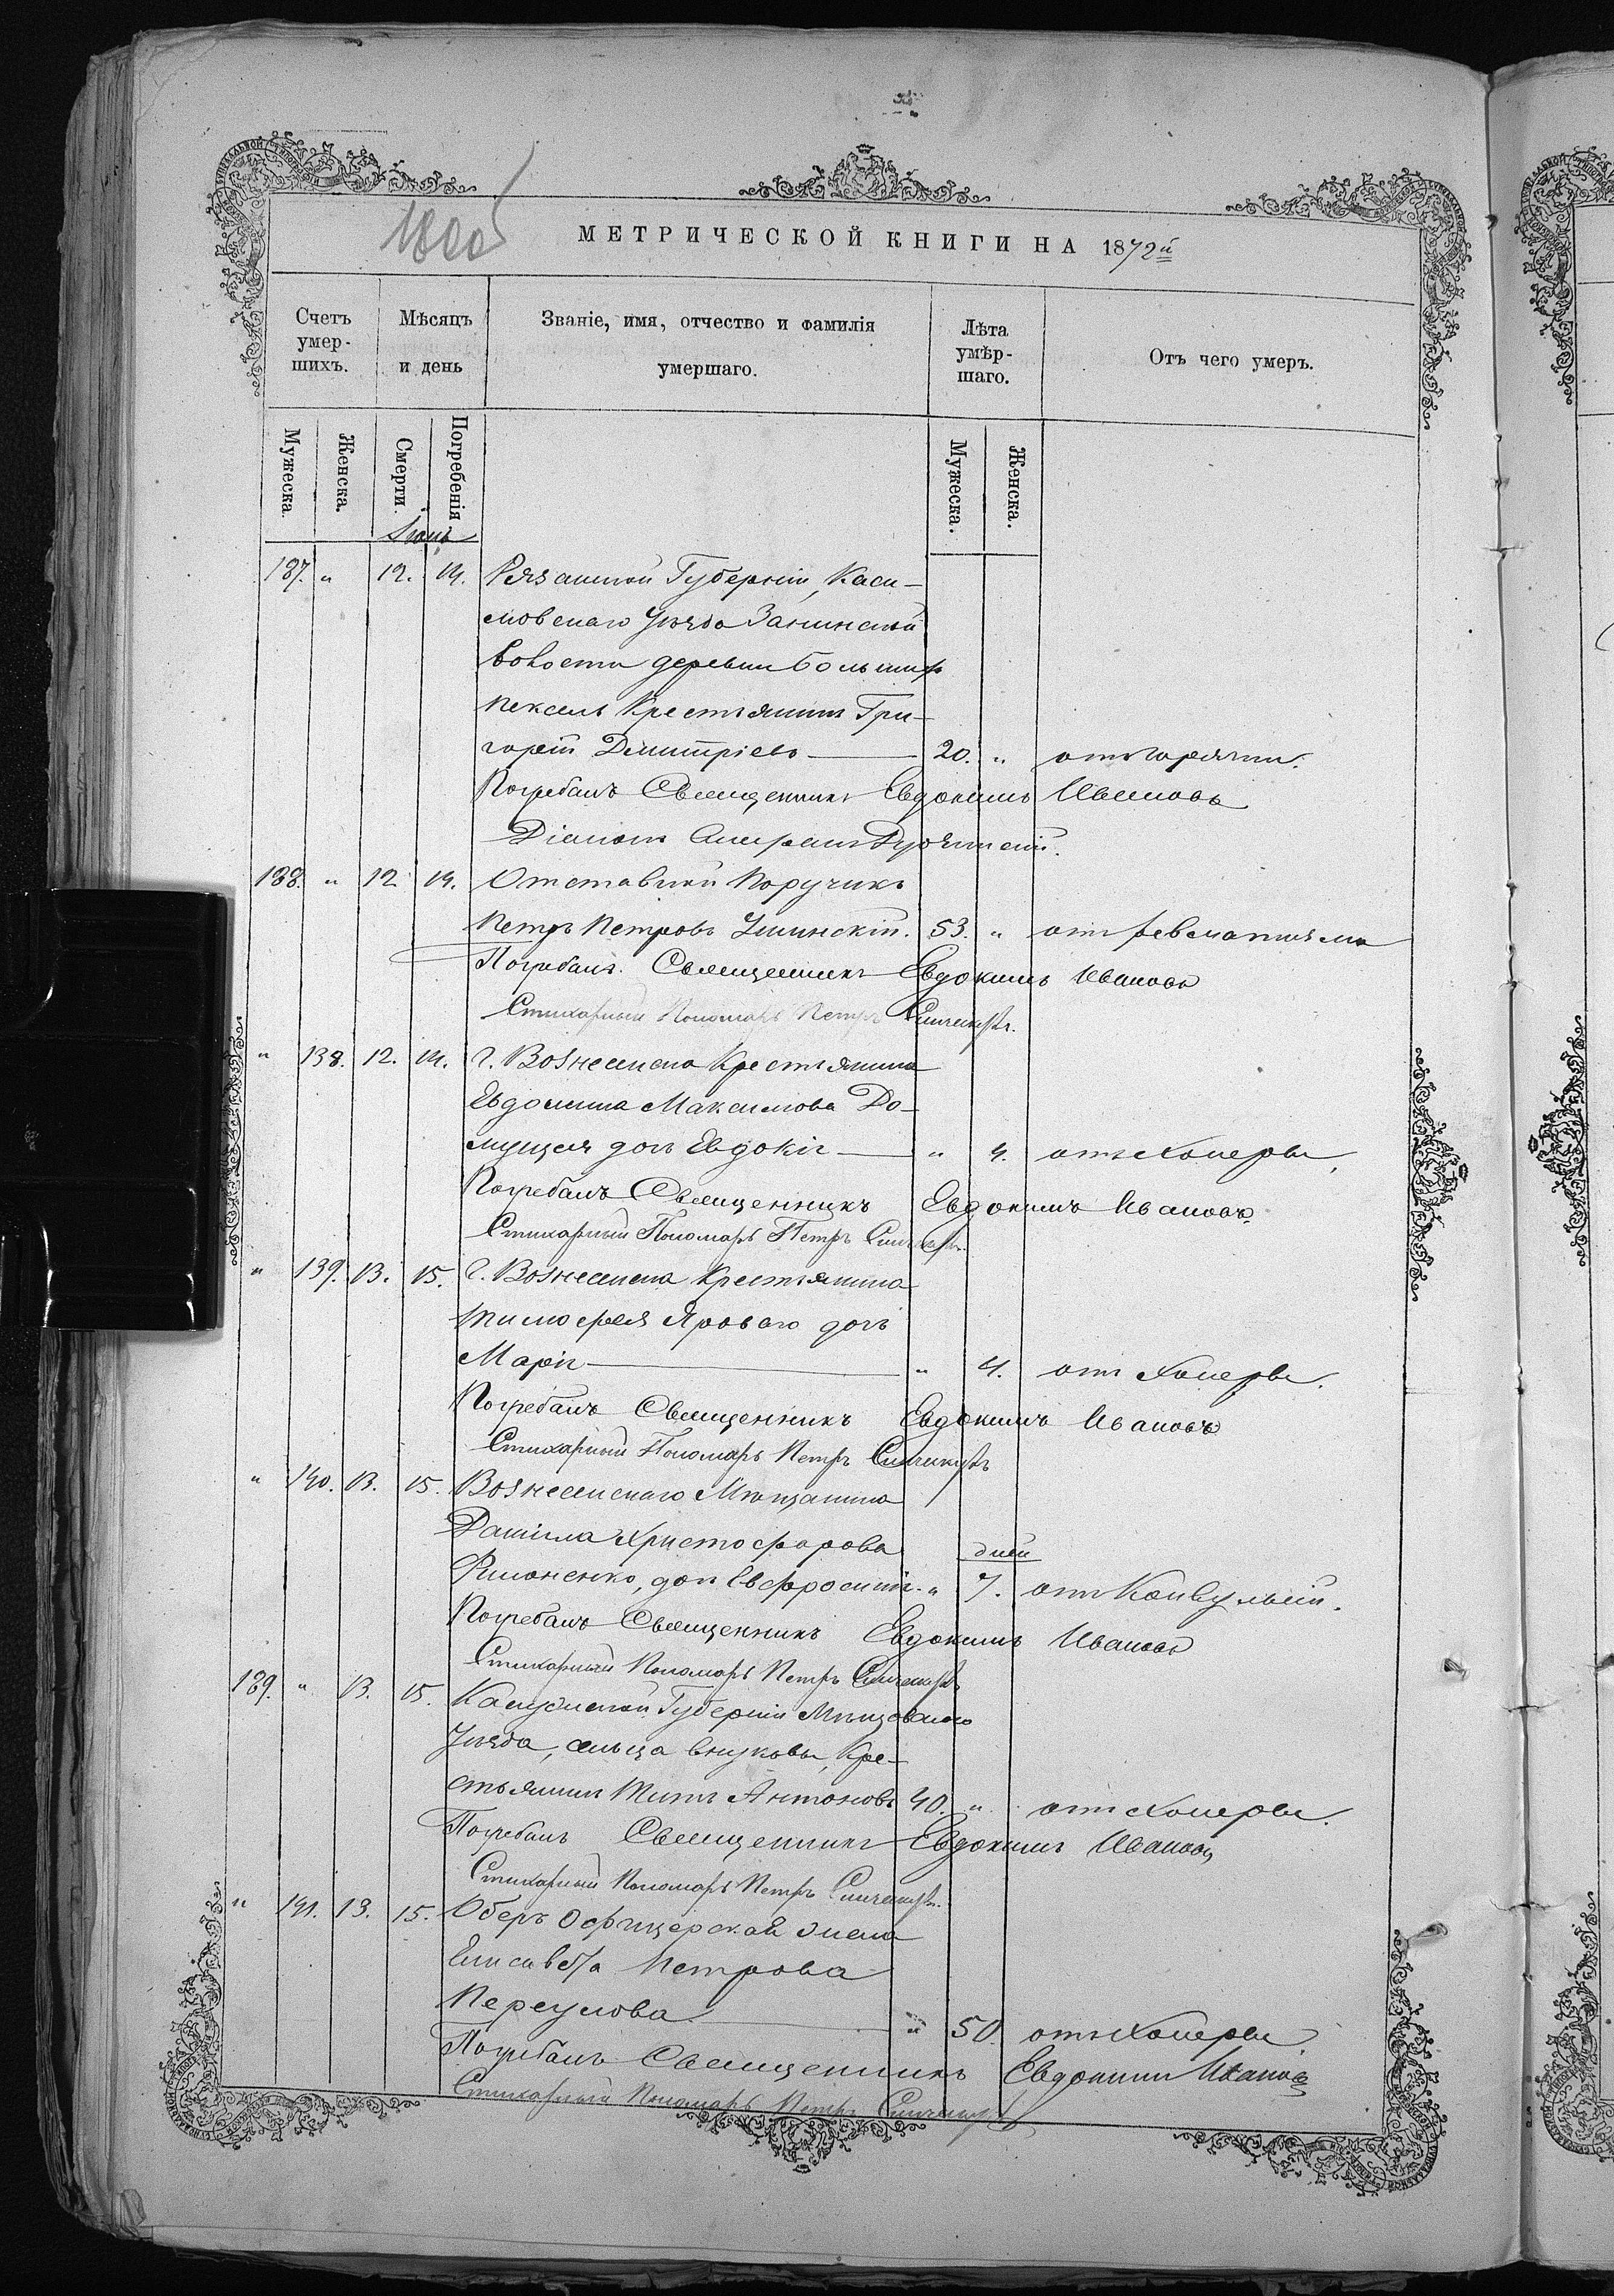 МЕТРИЧЕСКОЙ КНИГИ НА 1872й
Счетъ умер-шихъ.
Мѣсяцъ и день
Званіе, имя, отчество и фамилія умершаго.
Лѣта умѣр-шаго.
Отъ чего умеръ.
Мужеска.
Женска.
Смерти.
Погребенія
Мужеска.
Женска.
187. " 12. 14. Рязанской Губерніи, Каси-
мовскаго Уѣзда Занинской
волости деревни Большихъ
Пексель Крестьянинъ Гри-
горій Димитріевъ 20. " отъ горячки.
Погребалъ Священникъ Евдокимъ Ивановъ
Діаконъ
188. " 12 14. Отставной Поручикъ
Петръ Петровъ Ушинскій. 53. " отъ ревматизма
Погребалъ Священникъ Евдокимъ Ивановъ
Стихарный Пономарь Петръ
" 138. 12. 14. г. Вознесенска Крестьянина
Евдокима Максимова До-
дочь Евдокія " 4. отъ Холеры.
Погребалъ Священникъ Евдокимъ Ивановъ
Стихарный Пономарь Петръ
" 139. 13. 15. г. Вознесенска Крестьянина
Тимофея Яроваго дочь
Марія " 4. отъ Холеры.
Погребалъ Священникъ Евдокимъ Ивановъ
Стихарный Пономарь Петръ
" 140. 13. 15. Вознесенскаго Мѣщанина
Даніила Христофорова дней
дочь Евфросинія. " 7. отъ Конвульсій.
Погребалъ Священникъ Евдокимъ Ивановъ
Стихарный Пономарь Петръ
189. " 13. 15. Калужской Губерніи Мещовскаго
Уѣзда, сельца Внуковы, Кре-
стьянинъ Титъ Антоновъ 40. " отъ Холеры.
Погребалъ Священникъ Евдокимъ Ивановъ
Стихарный Пономарь Петръ
" 141. 13. 15. Оберъ Офицерская жена
Елисавета Петрова
" 50 отъ Холеры
Погребалъ Священникъ Евдокимъ Ивановъ
Стихарный Пономарь Петръ